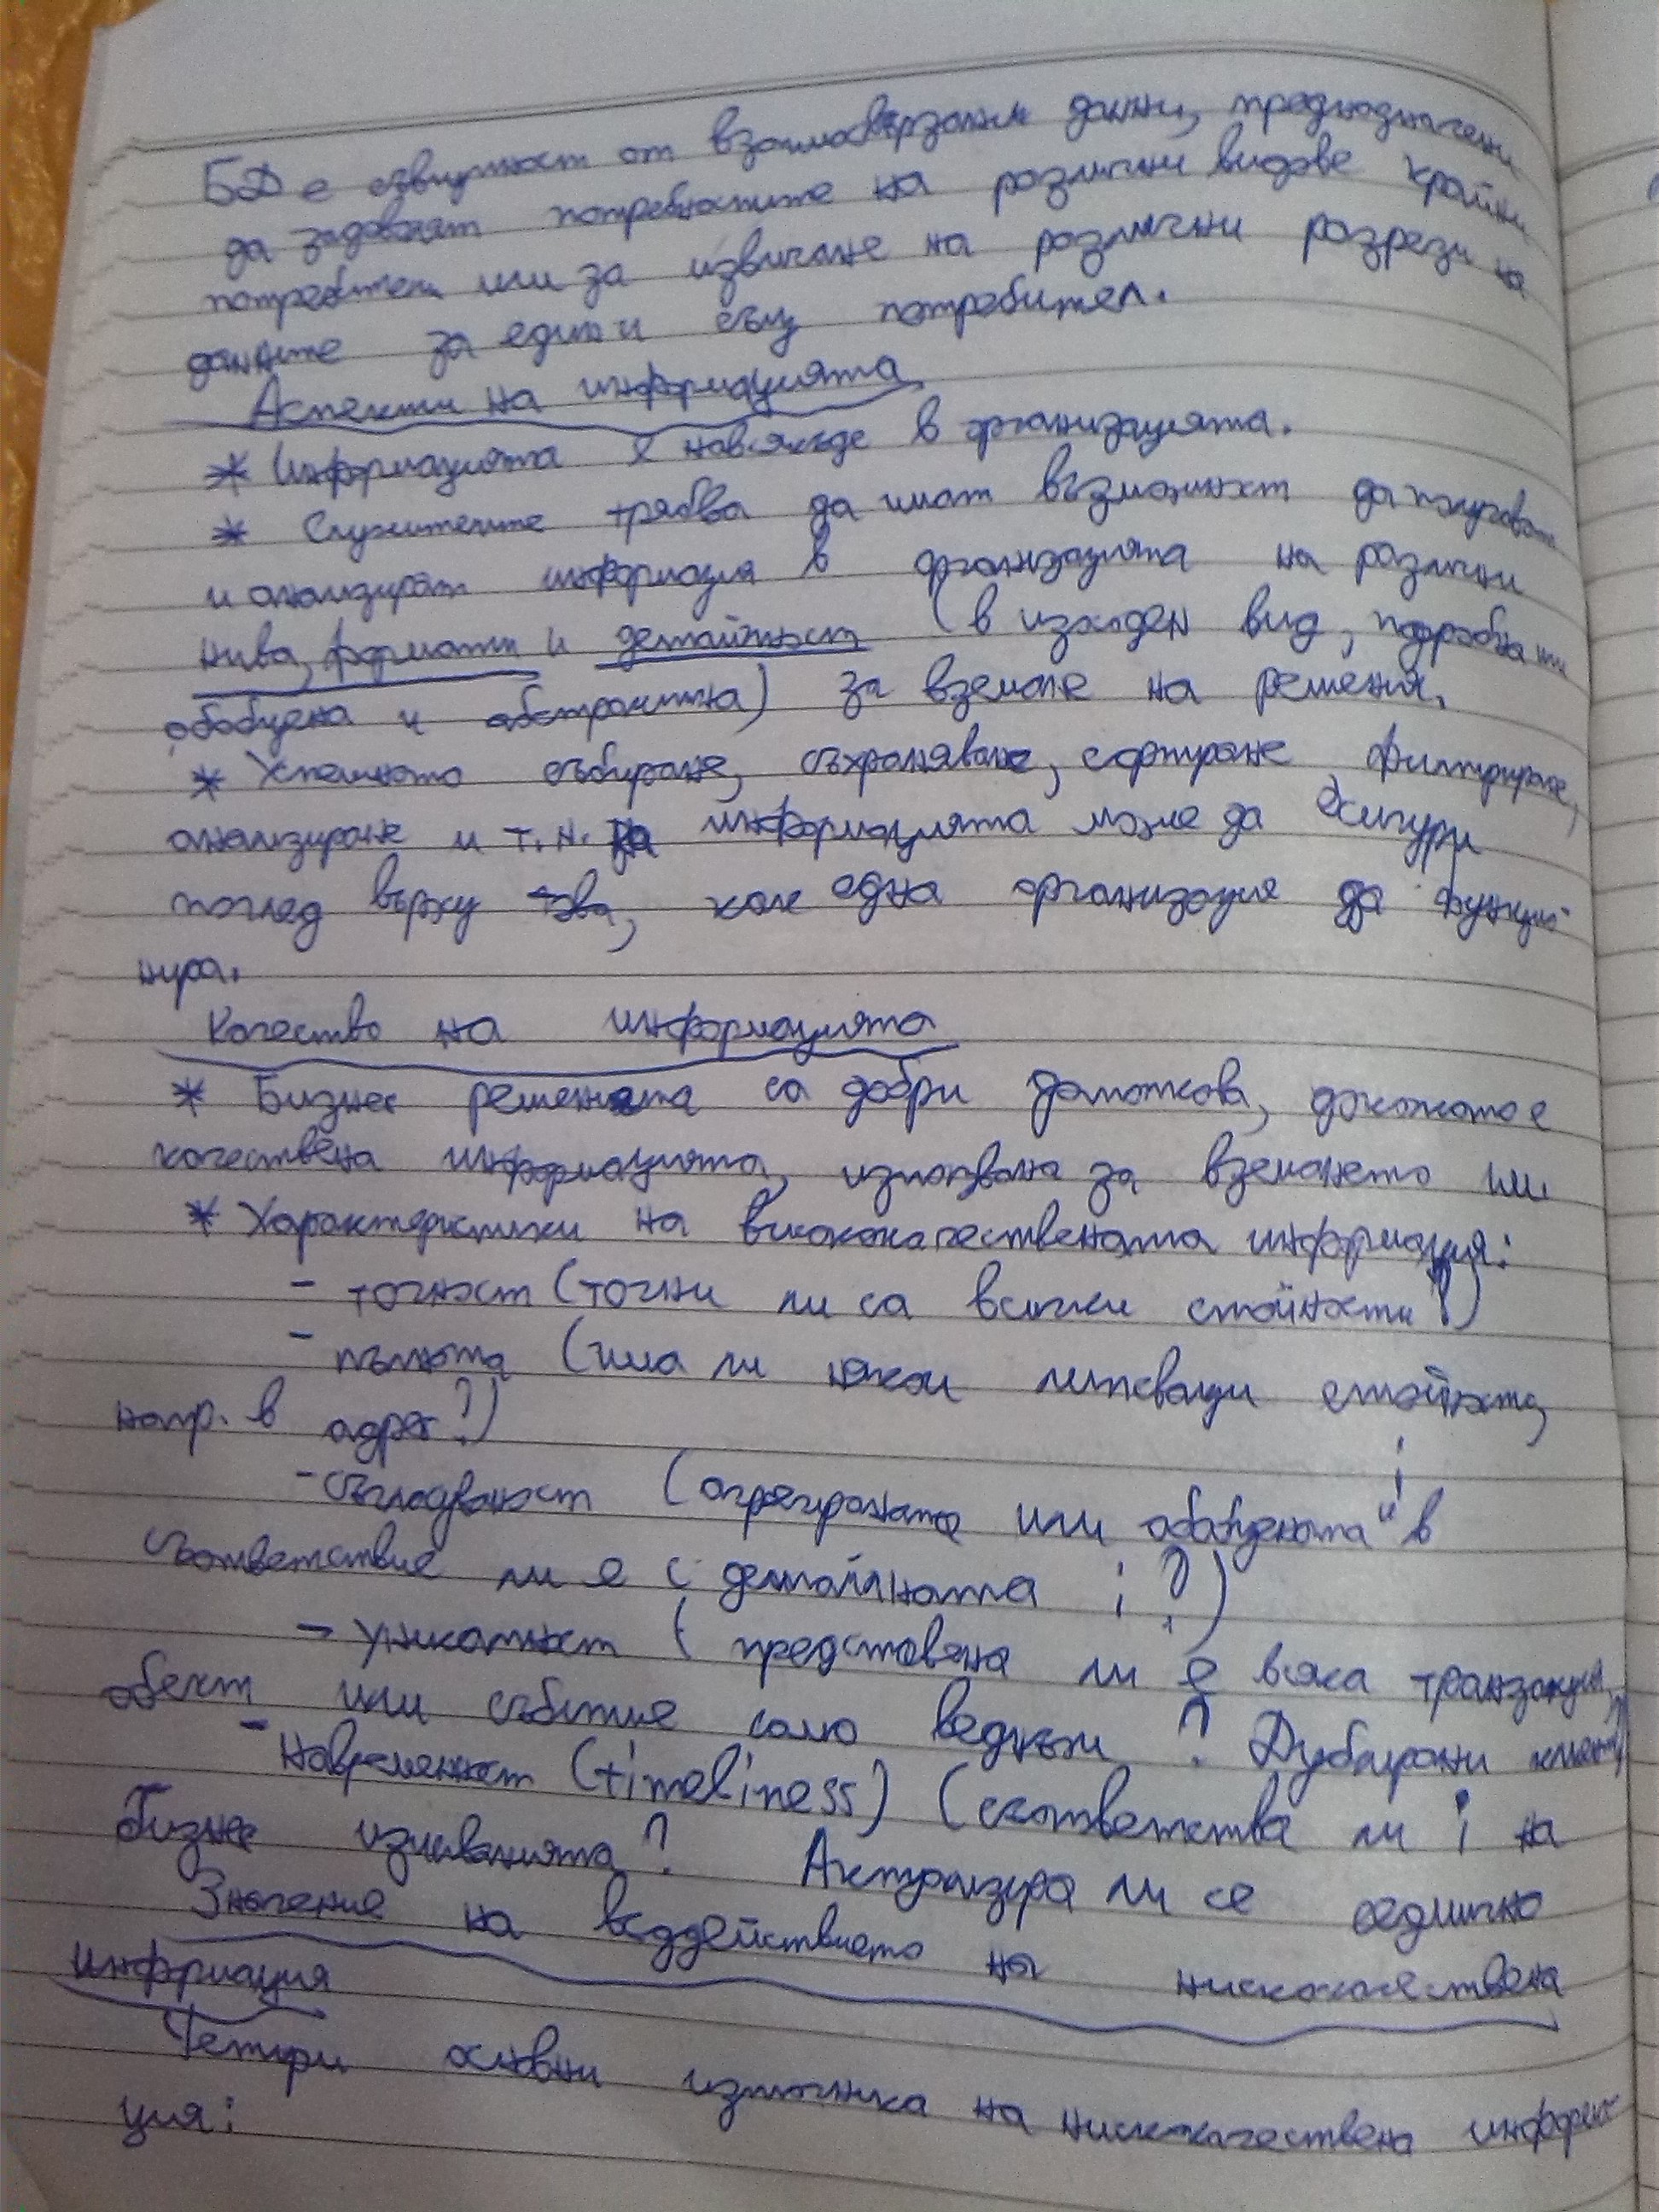 БД е съвкупност от взаимосвързани данни, предназначени
да задоволят потребностите на различни видове крайни
потребители или за извличане на различни разрези на
данните за един и същ потребител.
Аспекти на информацията
* Информацията е навсякъде в организацията.
* Служителите трябва да имат възможност да получават
и анализират информация в организацията на различни
нива, формати и детайлност (в изходен вид, подробна или
обобщена и абстрактна) за вземане на решения.
* Успешното събиране, съхраняване, сортиране, филтриране,
анализиране и т.н. на информацията може да осигури
поглед върху това, как една организация да функцио-
нира.
Качество на информацията
* Бизнес решенията са добри дотолкова, доколкото е
качествена информацията, използвана за вземането им
* Характеристики на висококачествената информация:
- точност (точни ли са всички стойности?)
- пълнота (има ли някои липсващи стойности,
напр. в адрес?)
- съгласуваност (агрегираната или обобщената i в
съответствие ли е с детайлната i?)
- уникалност (представена ли е всяка транзакция,
обект или събитие само веднъж? Дублирани клиенти?)
- Навременност (timeliness) (съответства ли i на
бизнес изискванията? Актуализира ли се седмично
Значение на въздействието на нискокачествена
информация
Четири основни източника на нискокачествена информа-
ция: